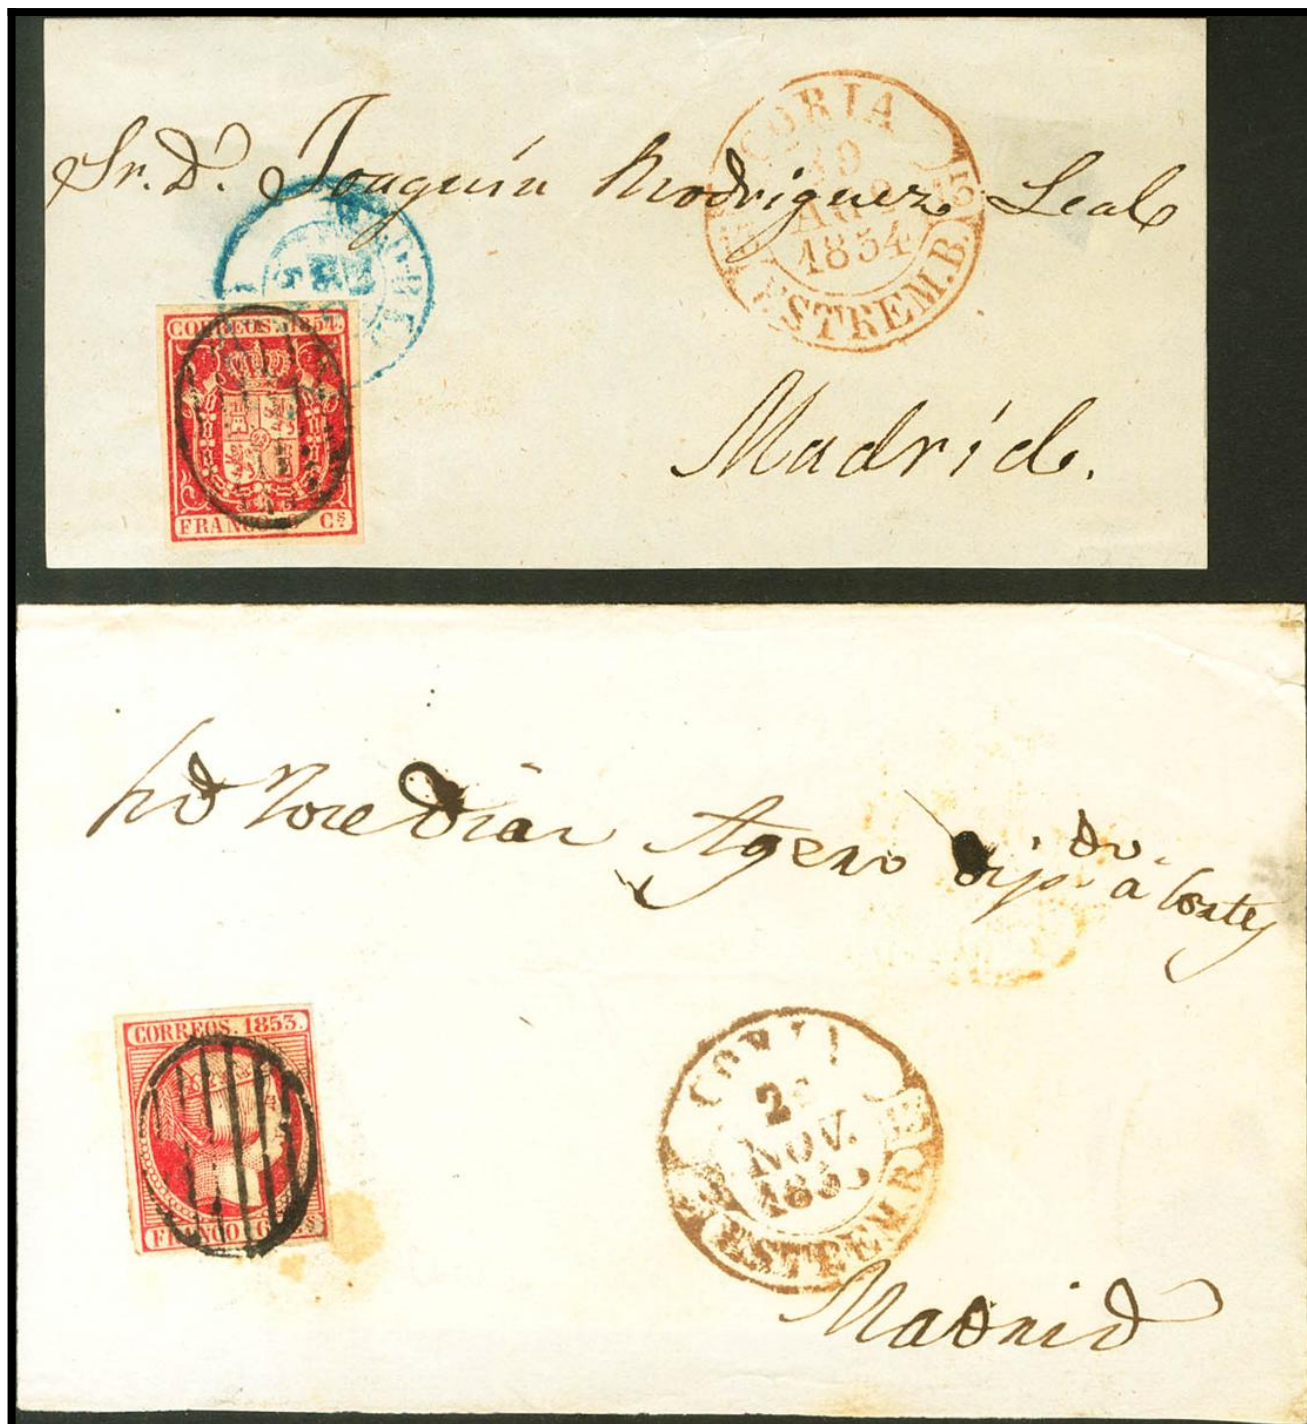 Sr. D. Joaquín Rodriguez Leal
CORIA
19
AGO
1854
ESTREM.B.
15
CORREOS. 1854.
FRANCO 6 Cs.
Madrid.
Jose Diaz Agero dip.do á Cortes
CORREOS. 1853.
FRANCO 6 Cs.
NOV.
ESTREM
Madrid